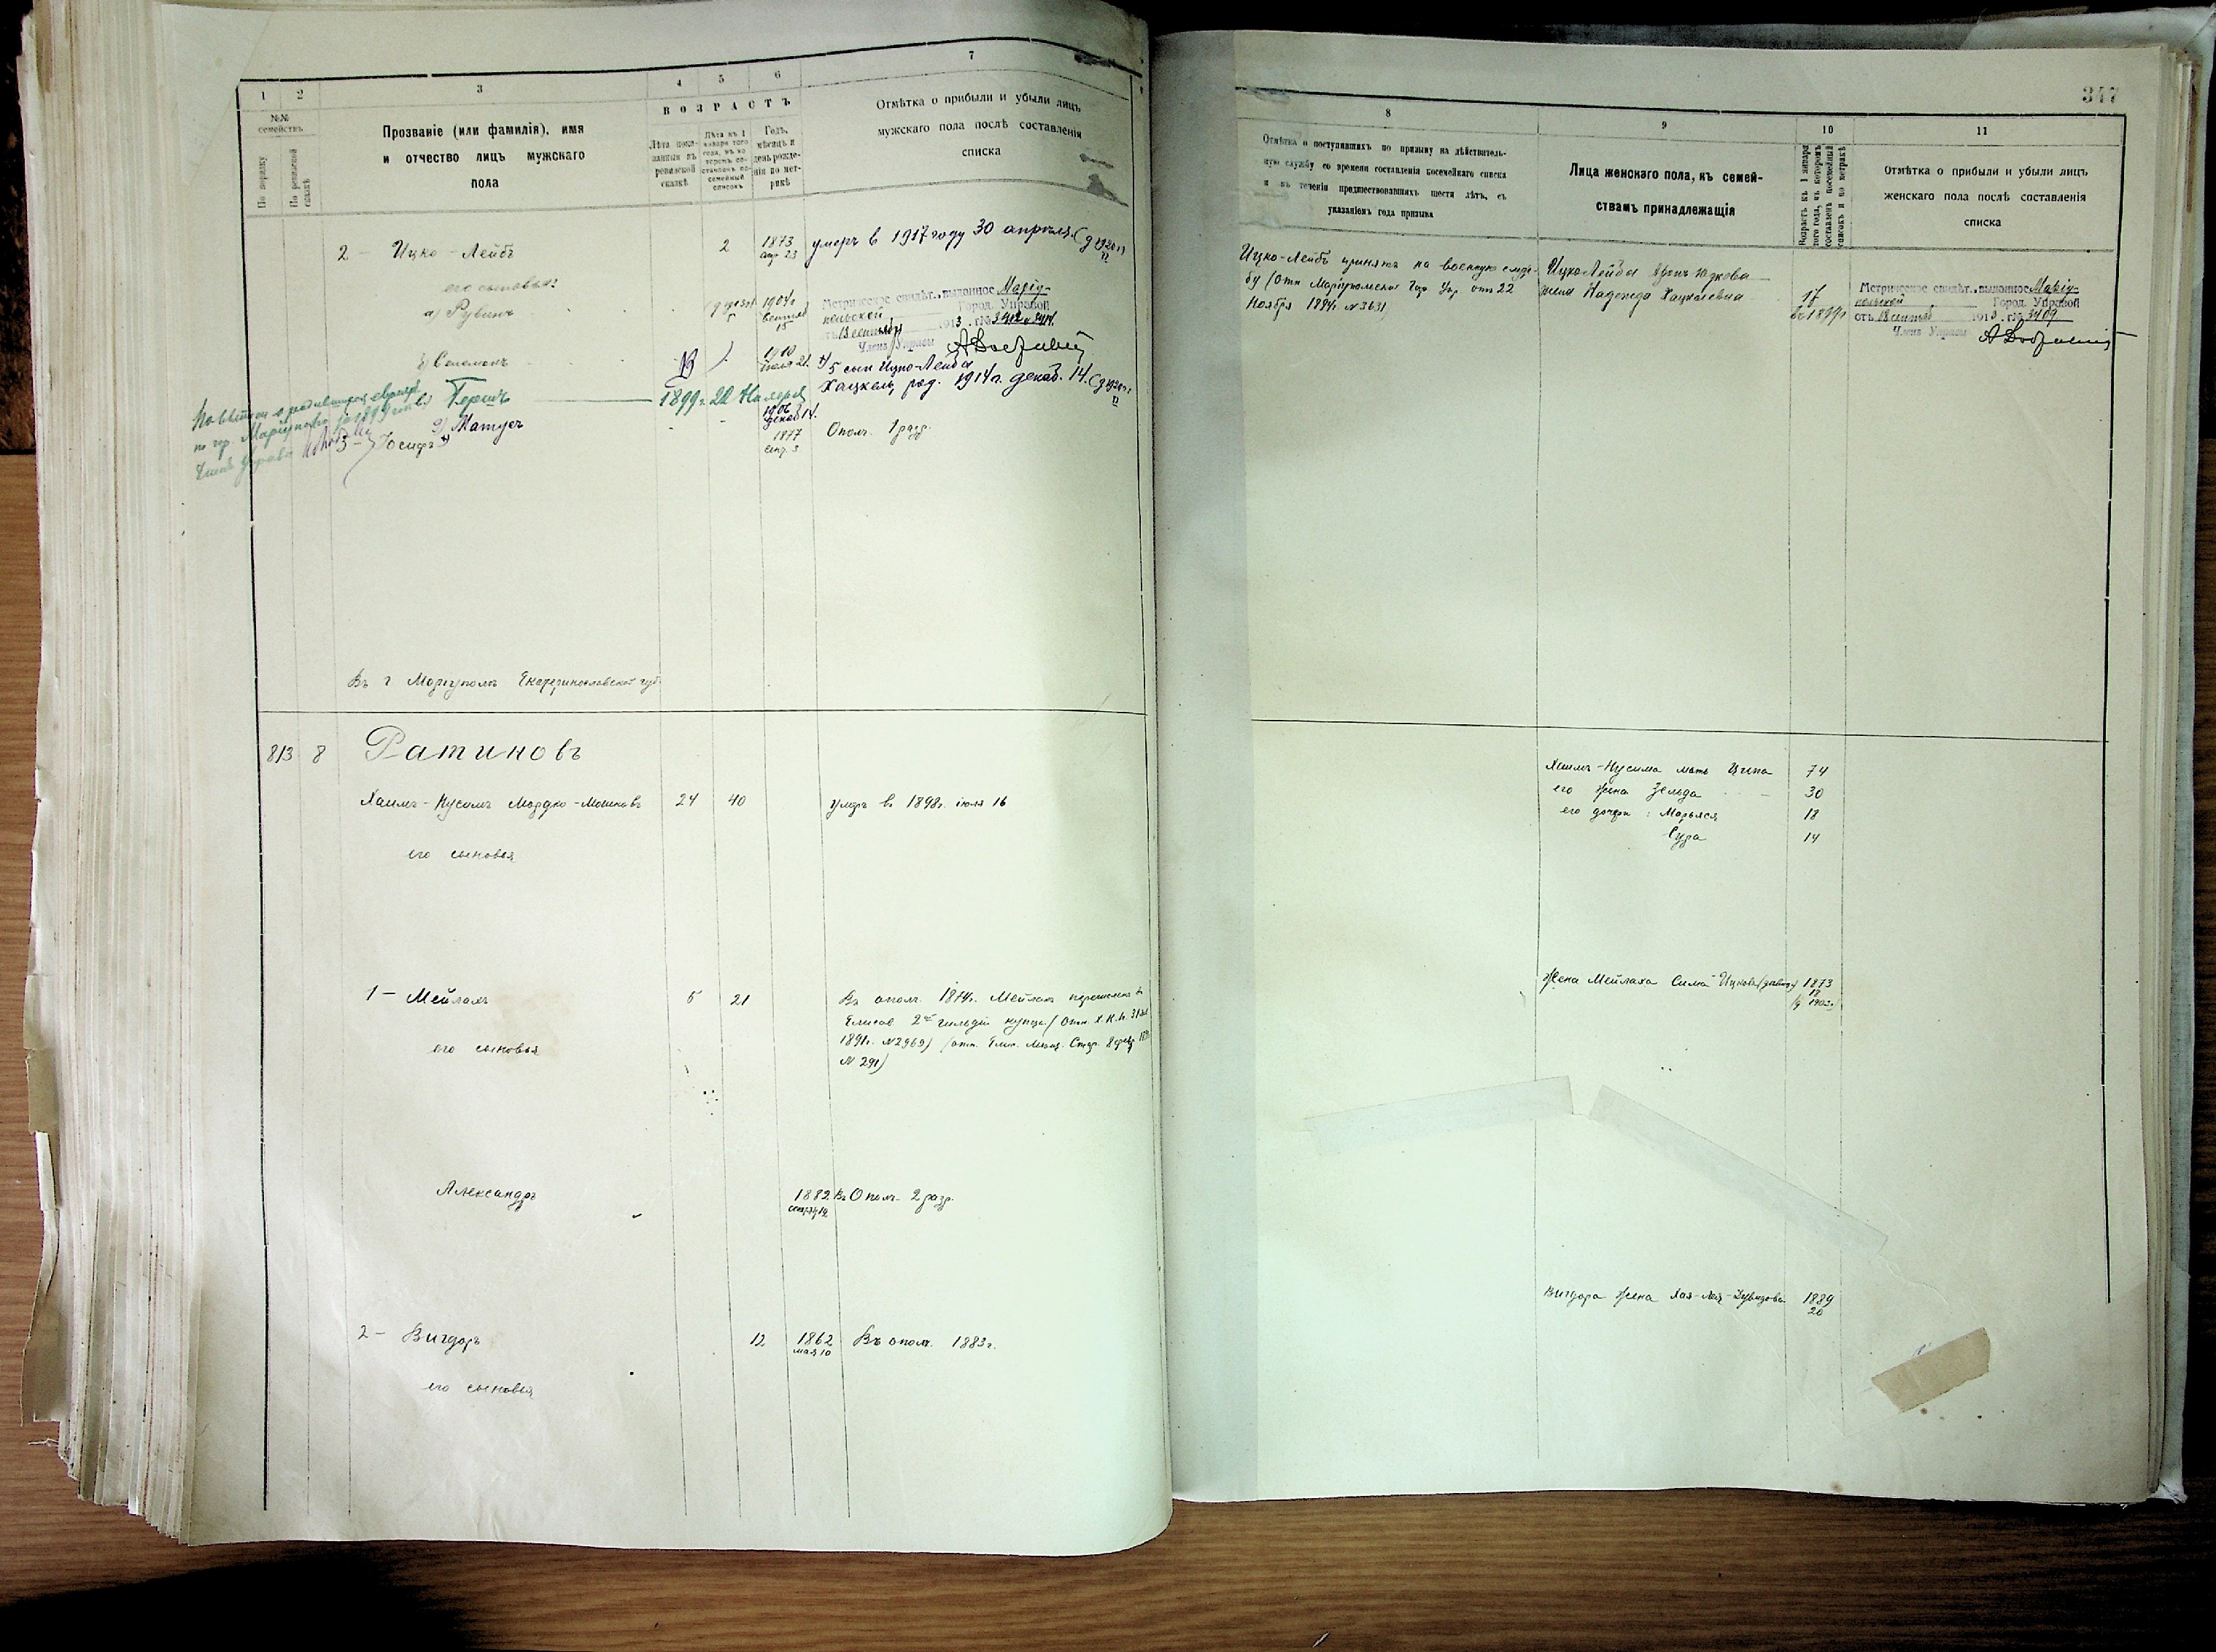 1 2 3 4 5 6 7
№№ семействъ
По порядку
По ревизской сказкѣ
Прозваніе (или фамилія), имя
и отчество лицъ мужскаго
пола
ВОЗРАСТЪ
Лѣта пока-
занныя въ
ревизской
сказкѣ
Лѣта къ 1
января того
года, въ ко-
торомъ со-
ставленъ по-
семейный
списокъ
Годъ,
мѣсяцъ и
день рожде-
нія по мет-
рикѣ
Отмѣтка о прибыли и убыли лицъ
мужскаго пола послѣ составленія
списка
2 - Ицко-Лейбъ 2 1873 апр 23 умеръ в 1917 году 30 апрѣля
его сыновья:
а) Рувинъ 1904 г. сентяб 15
Метрическое свидѣт., выданное Маріу-
польской Город. Управой
отъ 13 сентяб 1913 г. №
Членъ Управы
Соломонъ 1910 21
5 сын Ицко-Лейба
Хацкель, род. 1914 г. декаб. 14.
Гершъ 1899 г. 22
Матусъ 1906 декаб 14.
3 - Іосифъ 1877 Сент. 3 Ополч. 1 разр.
Въ г Маріуполѣ Екатеринославской губ.
813 8 Ратиновъ
Хаимъ-Нусимъ Мордко-Мошковъ 24 40 умеръ въ 1898 г. іюля 16
его сыновья
1 - Мейлахъ 5 21 Въ ополч. 1874 г. Мейлахъ перечисленъ въ
Елисав 2й гильдіи купцы (Отн. Х.К.П. 31
1891 г. № 2969) (отн. Елис. Мѣщ. Стар. 8 февр
№ 291)
его сыновья
Александръ 1882 12 Въ Ополч. 2 разр.
2 - Вигдоръ 12 1862 мая 10 Въ ополч. 1883 г.
его сыновья
347
8 9 10 11
Отмѣтка о поступившихъ по призыву на дѣйствитель-
ную службу со времени составленія посемейнаго списка
и въ теченіи предшествовавшихъ шести лѣтъ, съ
указаніемъ года призыва
Лица женскаго пола, къ семей-
ствамъ принадлежащія
Возрастъ къ 1 января
того года, въ которомъ
составленъ посемейный
списокъ и по метрикѣ
Отмѣтка о прибыли и убыли лицъ
женскаго пола послѣ составленія
списка
Ицко-Лейбъ принятъ на военную служ-
бу (Отн Маріупольской Гор. Упр отъ 22
Ноября 1894 г. № 3631)
Ицко-Лейбы
жена Надежда Хацкелевна 17
1879 г
Метрическое свидѣт., выданное Маріу-
польской Город. Управой
отъ 13 сентяб 1913 г. № 3409
Членъ Управы
Хаимъ-Нусима мать Ципа 74
его жена Зельда 30
его дочери: Марьяся 18
Сура 14
Жена Мейлаха Сима Ицкова 1873
18
Вигдора жена Хая-Лея-Давидова 1889
20